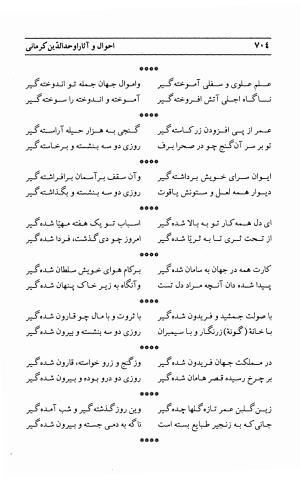 ۷۰۴ احوال و آثار اوحدالدّین کرمانی
****
علم علوی و سفلی آموخته گیر واموال جهان جمله تو اندوخته گیر
ناگاه اجلی آتش افروخته گیر آموخته و اندوخته را سوخته گیر
****
عمر از پی افزودن زر کاسته گیر گنجی به هزار حیله آراسته گیر
تو بر سر آن گنج چو در صحرا برف روزی دو سه بنشسته و برخاسته گیر
****
ایوان سرای خویش برداشته گیر وآن سقف بر آسمان برافراشته گیر
دیوار همه لعل و ستونش یاقوت روزی دو سه بنشسته و بگذاشته گیر
****
ای دل همه کار تو به بالا شده گیر اسباب تو یک هفته مهیّا شده گیر
از تحت ثری تا به ثریّا شده گیر امروز چو دی گذشت، فردا شده گیر
****
کارت همه در جهان به سامان شده گیر بر کام هوای خویش سلطان شده گیر
پیدا شده دان آنچه مراد دل تست وآنگاه به زیر خاک پنهان شده گیر
****
با صولت جمشید و فریدون شده گیر با ثروت و با مال چو قارون شده گیر
با خانهٔ (گونهٔ) زرنگار و با سیمبران روزی دو سه بنشسته و بیرون شده گیر
****
در مملکت جهان فریدون شده گیر وز گنج و زر و خواسته، قارون شده گیر
بر چرخ رسیده قصر هامان شده گیر روزی دو درو بوده و بیرون شده گیر
****
زین گلبن عمر تازه گلها چده گیر وین روز گذشته گیر و شب آمده گیر
جانی که به زنجیر طبایع بسته است ناگه به دمی جسته و بیرون شده گیر
****